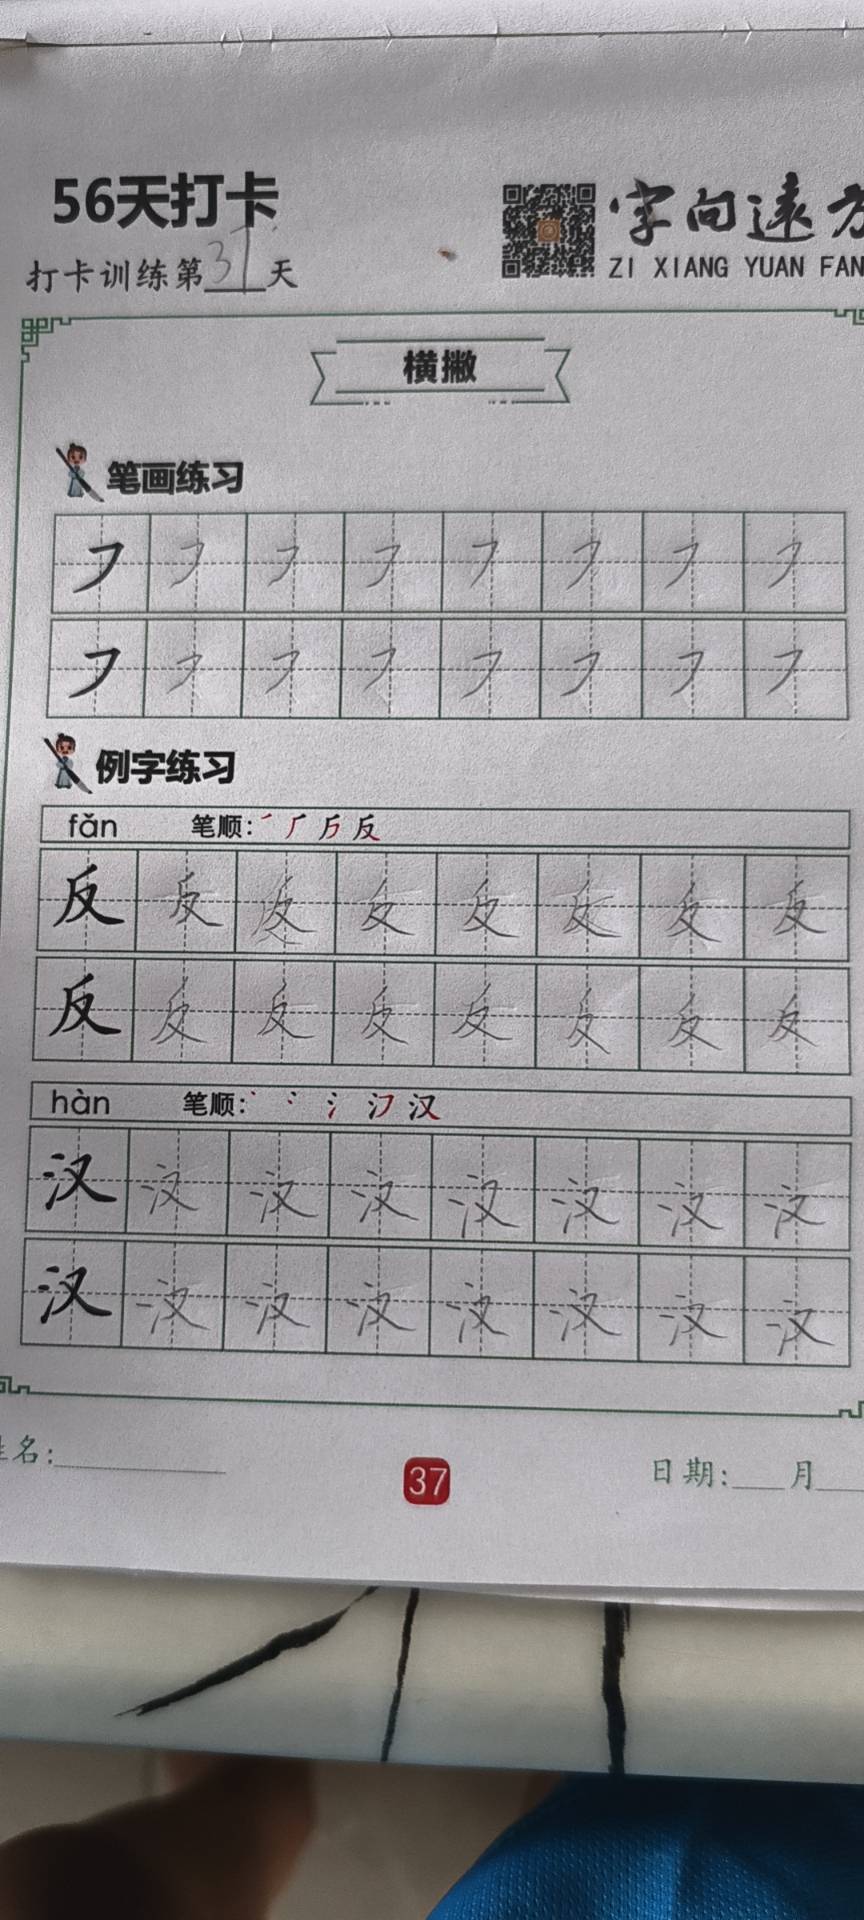 56天打卡
字向远方
ZI XIANG YUAN FAN
打卡训练第37天
横撇
笔画练习
㇇㇇㇇㇇㇇㇇㇇㇇
㇇㇇㇇㇇㇇㇇㇇㇇
例字练习
fǎn 笔顺: 反
反反反反反反反反
反反反反反反反反
hàn 笔顺: 丶 冫 氵 汉
汉汉汉汉汉汉汉汉
汉汉汉汉汉汉汉汉
姓名:
37
日期: 月